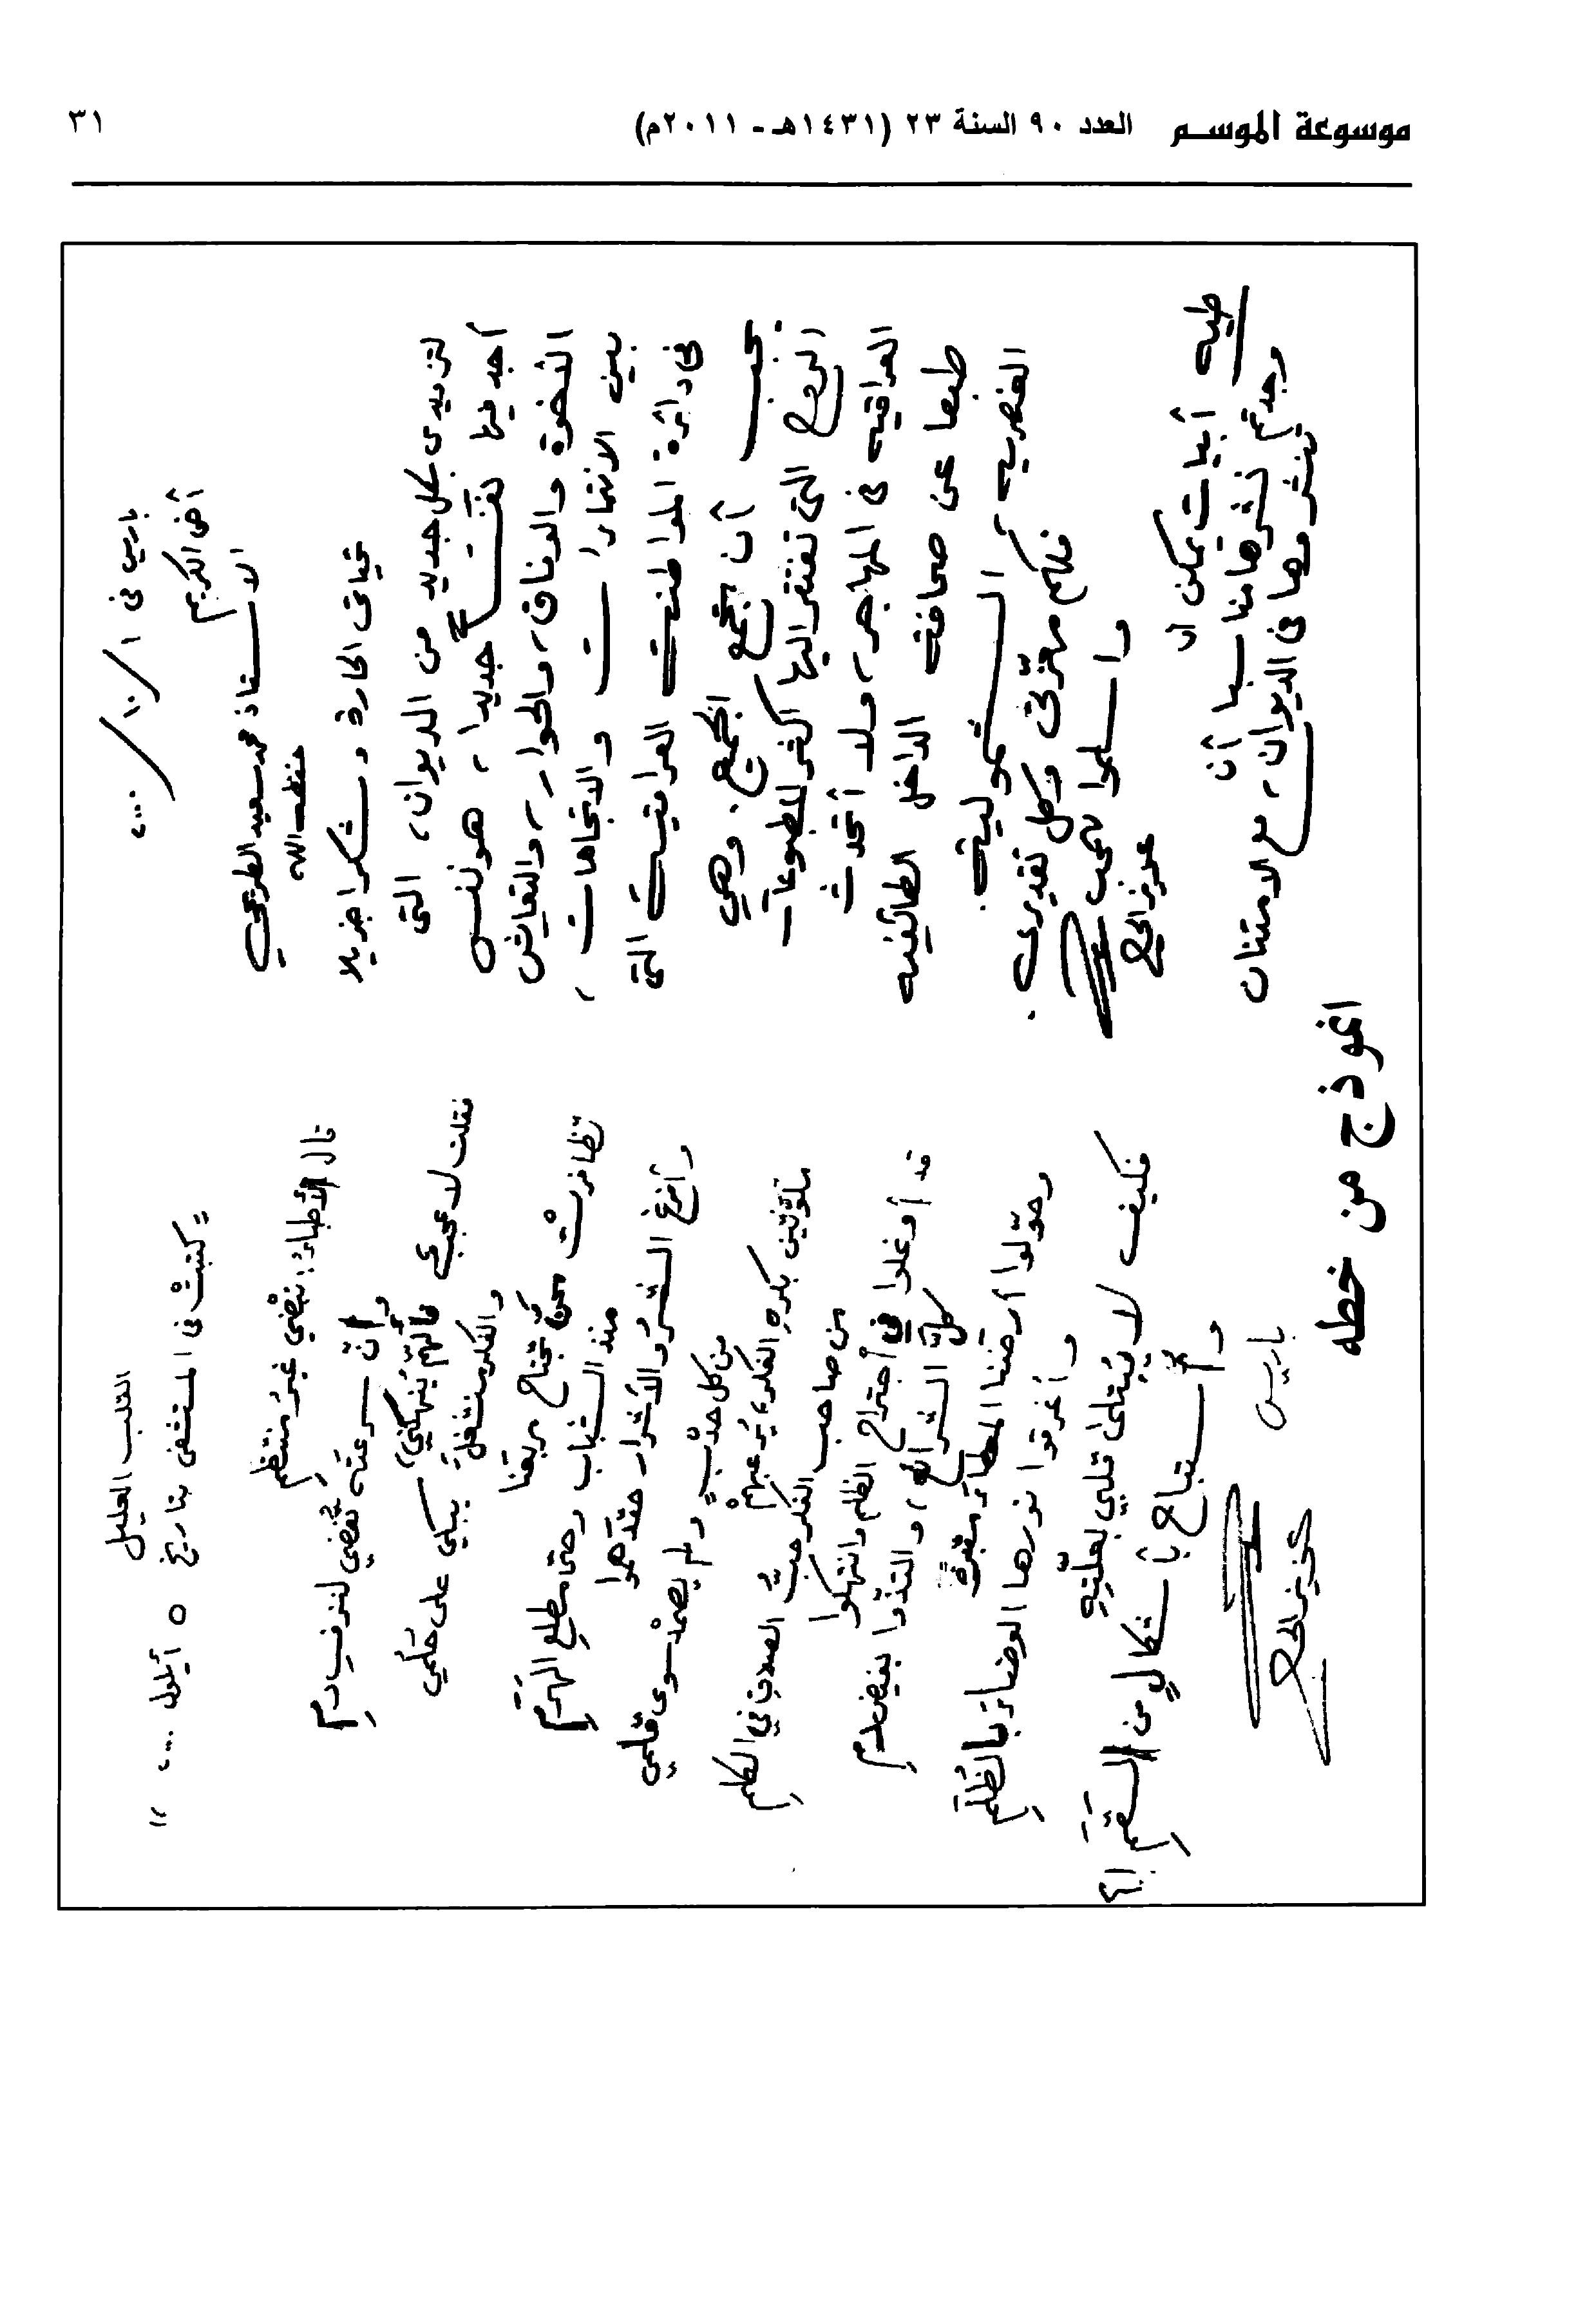 موسوعة الموســم العدد ٩٠ السنة ٢٣ (١٤٣١هـ - ٢٠١١م)
٣١
باريس في ١/١٠/٢٠٠٠
أخي الكريم
الاستاذ محمد سعيد الطريحي
حفظه الله
تحياتي الحارة وشكرا جزيلا
لتزويدي بكل جديد من الديوان، التي
أجد فيها نفَساً جديدا، هو نفس
الأخوة والوفاق، والحوار، والتعايش
بين الانتماءات والاتجاهات،
في دائرة المواطنة العراقية التي
يجب أن تجمع الجميع. وهي
الروح التي تفتقر اليها أكثر المطبوعات
العراقيه في المهاجر، ولا أتحدث
طبعا عن صحافة الداخل الطائفيه
العنصريه الشموليه.
فلكم معزّتي وكل تقديري.
واسلموا لمحب
عزيز الحاج
طيه أبيات يمكن أن
وجدتم نشرها مناسبا أن
تنشروها في الديوان، مع الامتنان
القلب العليل
" كتبتْ في المستشفى بتاريخ ٥ أيلول ٢٠٠٠ "
قال الأطباءُ: نبْضي غيرُ منتظمِ
وأنّ سرعتَه تُفضي لنزفِ دمِ
فقلت لا عجبٌ فالهمّ يُنهكني،
والفكر منشغلٌ يبكي على حُلُمي
تظافرتْ محنٌ تجتاح مربعَنا
منذ الشباب وحتى مطلعِ الهَرَمِ
وأفرغ الشرُّ والأشرار حقدَهموا
من كل حدْبٍ ولم يصمدْ سوى قلمي
ملوّثين بكرهِ الفكر، يُرعبهمْ
من صاحب الفكر حبُّ الصدقِ في الكلمِ
قد أوغلوا في اجتراح الظلم وانتهكوا
كلَّ الشرائع، والتذّوا بفيض دمِ
وحوّلوا أرضنا المعطاءَ مقبرةً
وأغرقوا نورها الوضاءَ بالظُلَمِ
فكيف لا يُبتلى قلبي بعلّتِهِ
ويُستباح بأشكالٍ من السَقَمِ !؟
باريس
عزيز الحاج
انموذج من خطه